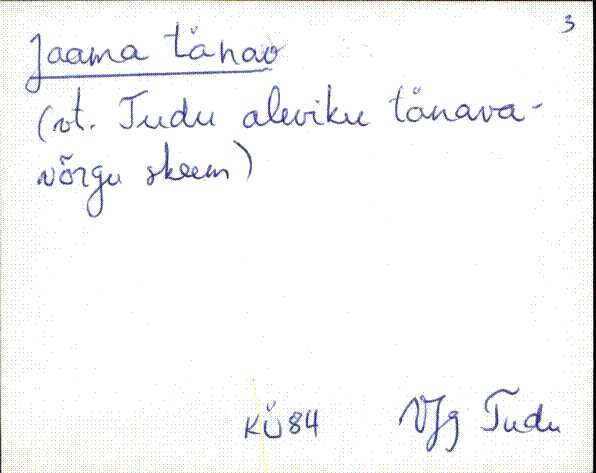 3
Jaama tänav
(vt. Tudu aleviku tänava-
võrgu skeem)
KÜ84 VJg Tudu